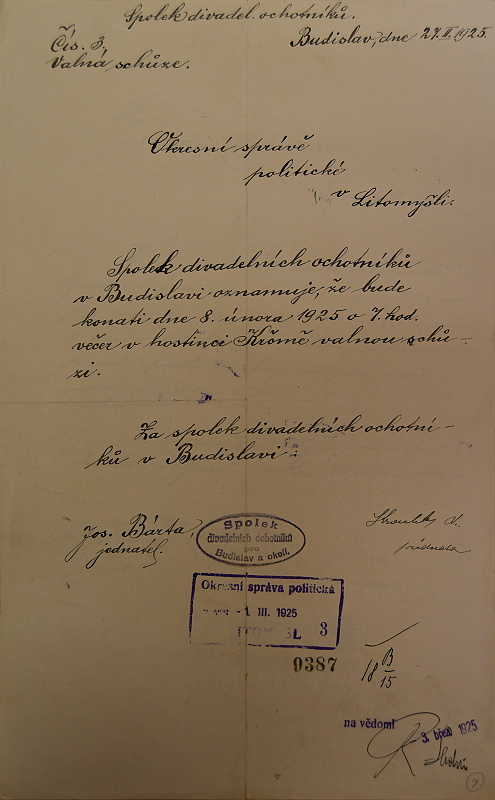 Spolek divadel. ochotníků.
Čís. 3. Budislav, dne 27.II.1925.
Valná schůze.
Okresní správě
politické
v Litomyšli.
Spolek divadelních ochotníků
v Budislavi oznamuje, že bude
konati dne 8. února 1925 o 7. hod.
večer v hostinci Krőmě valnou schů-
zi.
Za spolek divadelních ochotní-
ků v Budislavi:
Jos. Bárta,
jednatel.
Spolek
divadelních ochotníků
pro
Budislav a okolí.
Okresní správa politická
1 III. 1925
3
0387
18 B/15
na vědomí
3. břez 1925
7